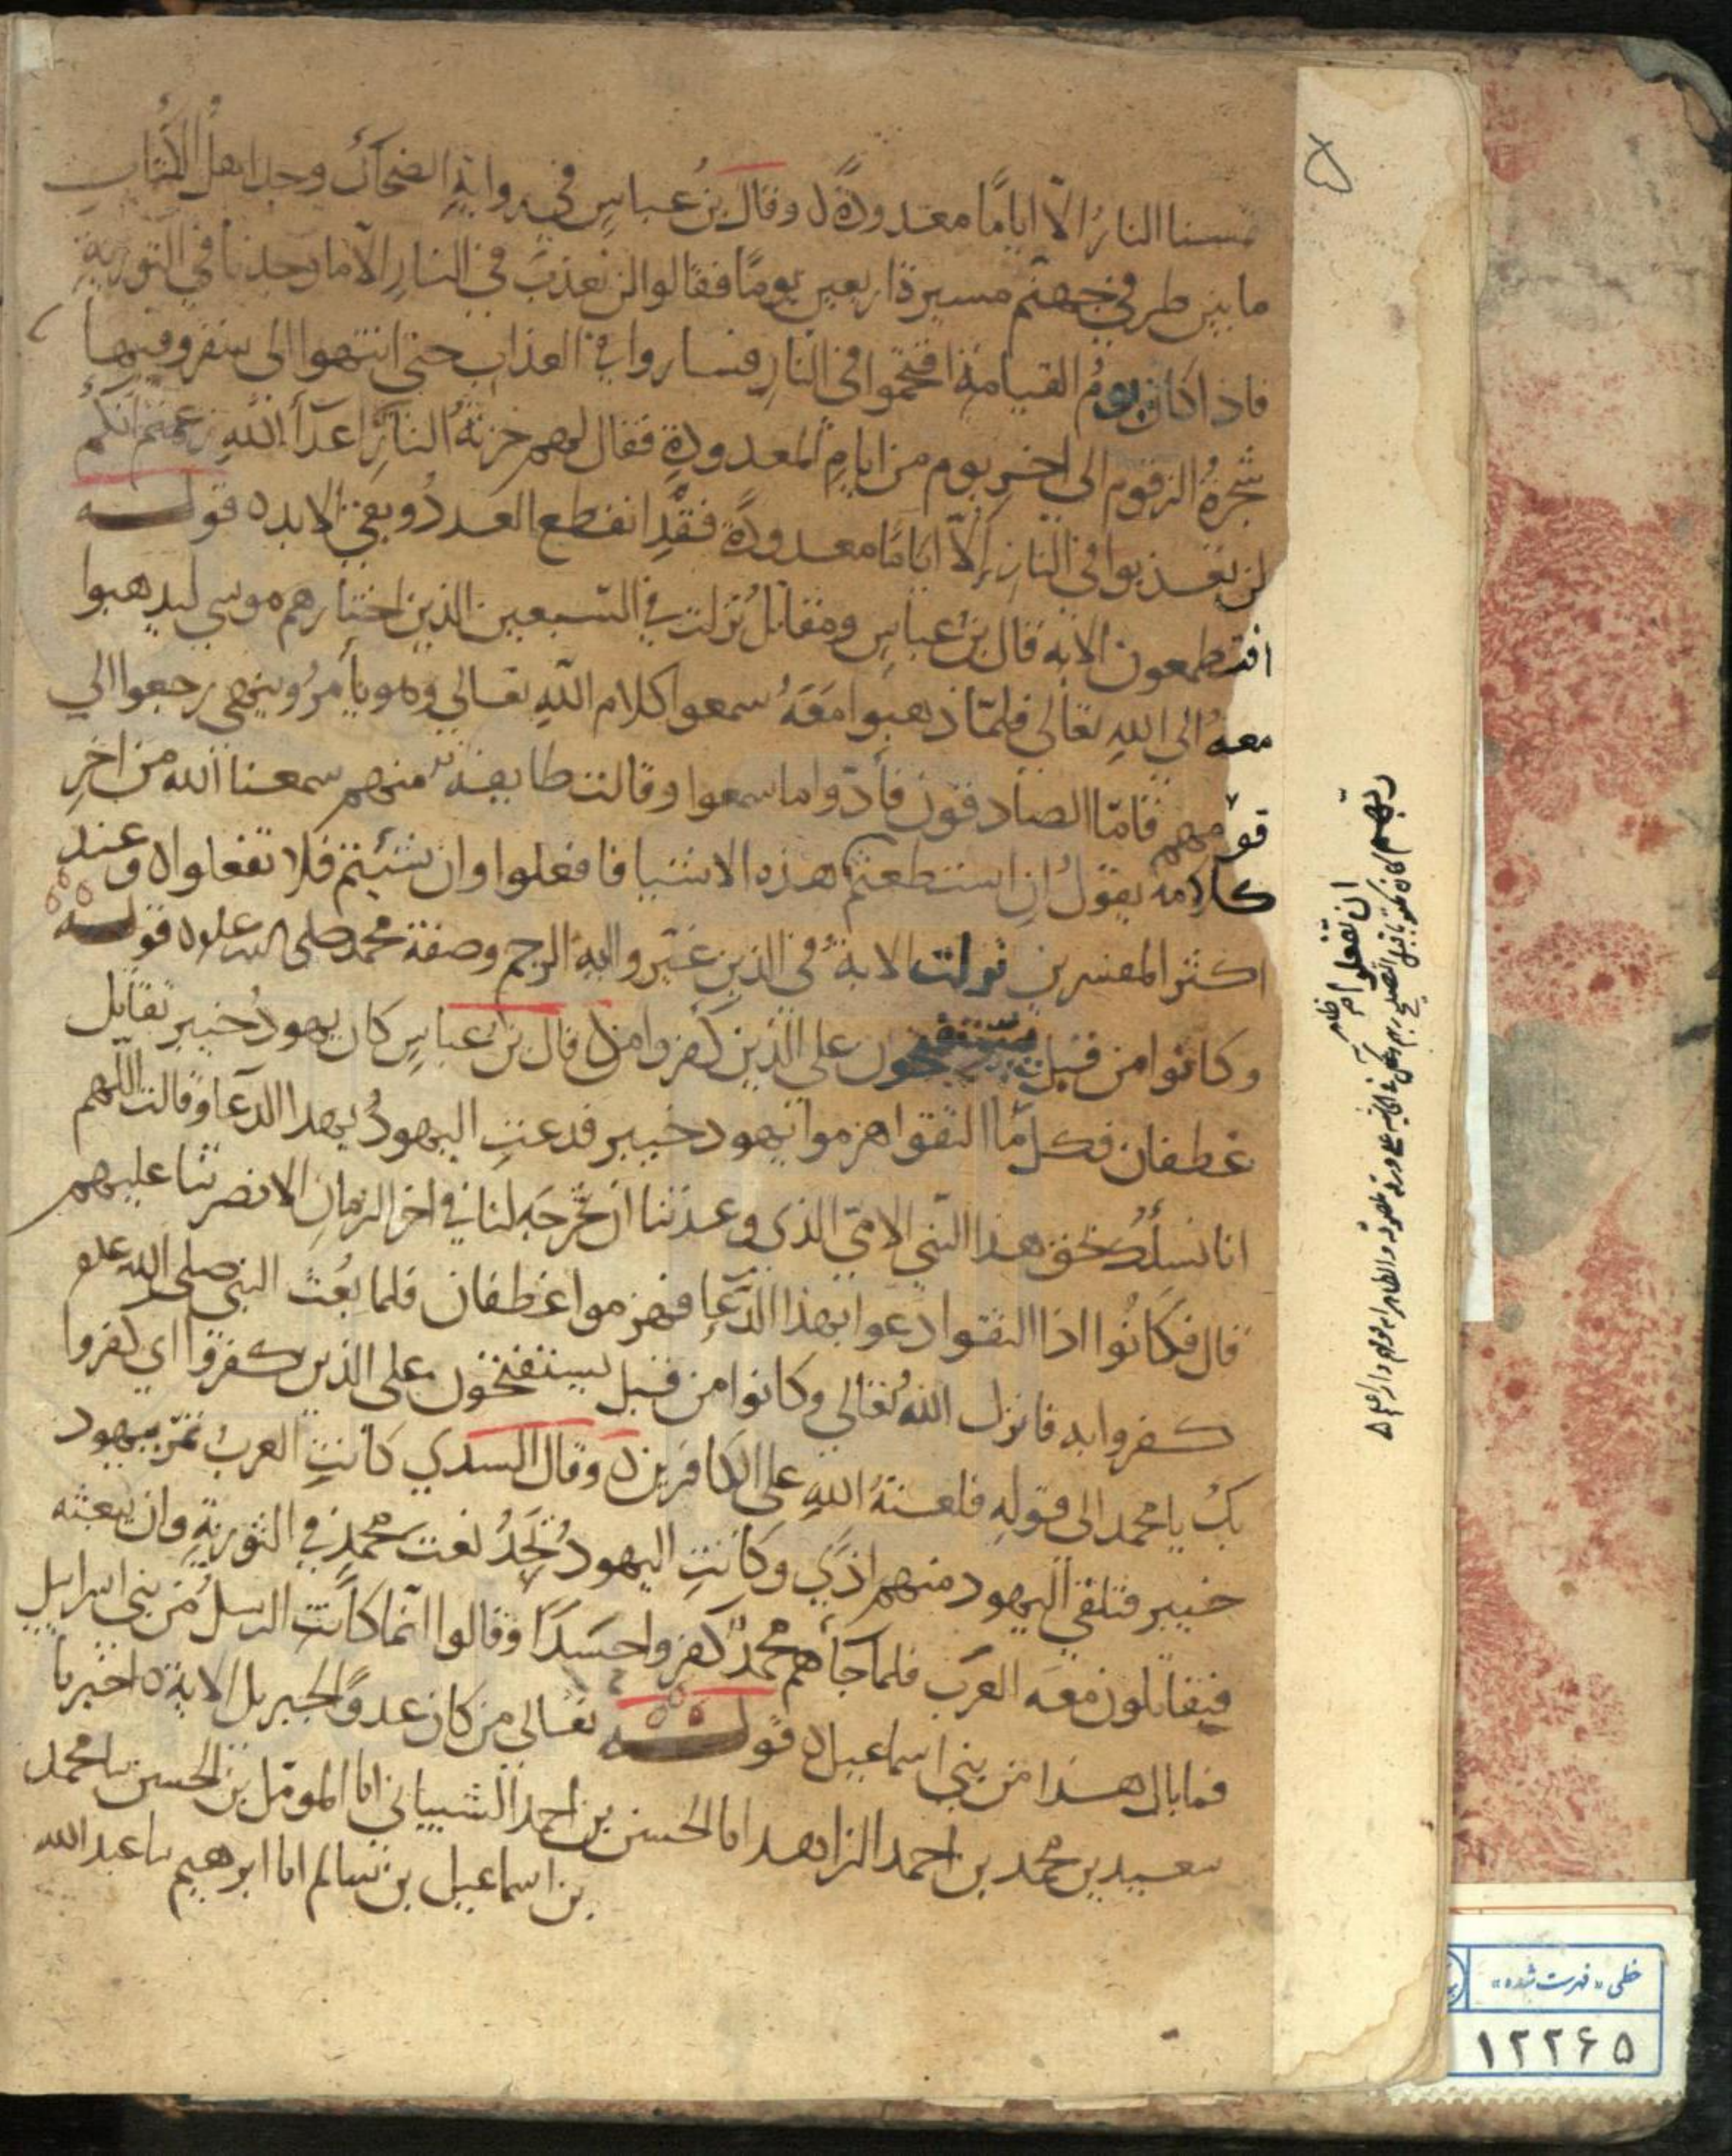 تمسنا النار الا اياما معدودة ٥ وقال بن عباس في رواية الضحاك وجد اهل الكتاب
ما بين طرفي جهنم مسيرة اربعين يوما فقالوا لن نعذب في النار الا ما وجدنا في التورية
فاذا كان يوم القيامة اقتحموا في النار فساروا في العذاب حتى انتهوا الى سقر وفيها
شجرة الزقوم الى اخر يوم من ايام المعدودة فقال لهم خزنة النار اعداء الله زعمتم انكم
لن تعذبوا في النار الا اياما معدودة فقد انقطع العدد وبقي الابد ٥ قوله
افتطمعون الاية قال بن عباس ومقاتل نزلت في السبعين الذين اختارهم موسى ليذهبوا
معه الى الله تعالى فلما ذهبوا معه سمعوا كلام الله تعالى وهو يأمر وينهى رجعوا الى
قومهم فاما الصادقون فأدوا ما سمعوا وقالت طايفة منهم سمعنا الله من اخر
كلامه يقول ان استطعتم هذه الاشيا فافعلوا وان شيتم فلا تفعلوا ٥ وعند
اكثر المفسرين نزلت الاية في الذين غيروا اية الرجم وصفة محمد صلى الله عليه ٥ قوله
وكانوا من قبل يستفتحون على الذين كفروا ٥ قال بن عباس كان يهود خيبر تقاتل
غطفان فكل ما التقوا هزموا يهود خيبر فدعت اليهود بهذا الدعا وقالت اللهم
انا نسلك بحق هذا النبي الامي الذي وعدتنا ان تخرجه لنا في اخر الزمان الا نصرتنا عليهم
قال فكانوا اذا التقوا دعوا بهذا الدعا فهزموا غطفان فلما بعث النبي صلى الله علم
كفروا به فانزل الله تعالى وكانوا من قبل يستفتحون على الذين كفروا اي كفروا
بك يا محمد الى قوله فلعنة الله على الكافرين ٥ وقال السدي كانت العرب تمر بيهود
خيبر فتلقى اليهود منهم اذى وكانت اليهود تجد نعت محمد في التورية وان يبعثه
فيقاتلون معه العرب فلما جاهم محمد كفروا حسدا وقالوا انما كانت الرسل من بني اسرايل
فما بال هذا من بني اسماعيل ٥ قوله تعالى من كان عدوا لجبريل الاية ٥ اخبرنا
سعيد بن محمد بن احمد الزاهد انا الحسن بن احمد الشيباني انا المومل بن الحسن نا محمد
بن اسماعيل بن سالم انا ابرهيم نا عبد الله
٥
ان تفعلوا
خطی «فهرست شده»
۱۲۲۶۵